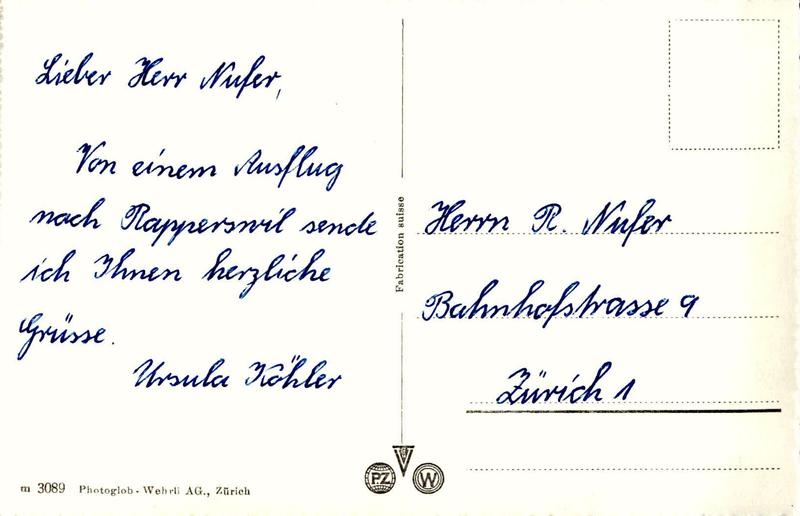 Lieber Herr Nufer,
Von einem Ausflug
nach Rapperswil sende
ich Ihnen herzliche
Grüsse.
Ursula Köhler
Fabrication suisse
Herrn R. Nufer
Bahnhofstrasse 9
Zürich 1
PZ W
m 3089 Photoglob-Wehrli AG., Zürich